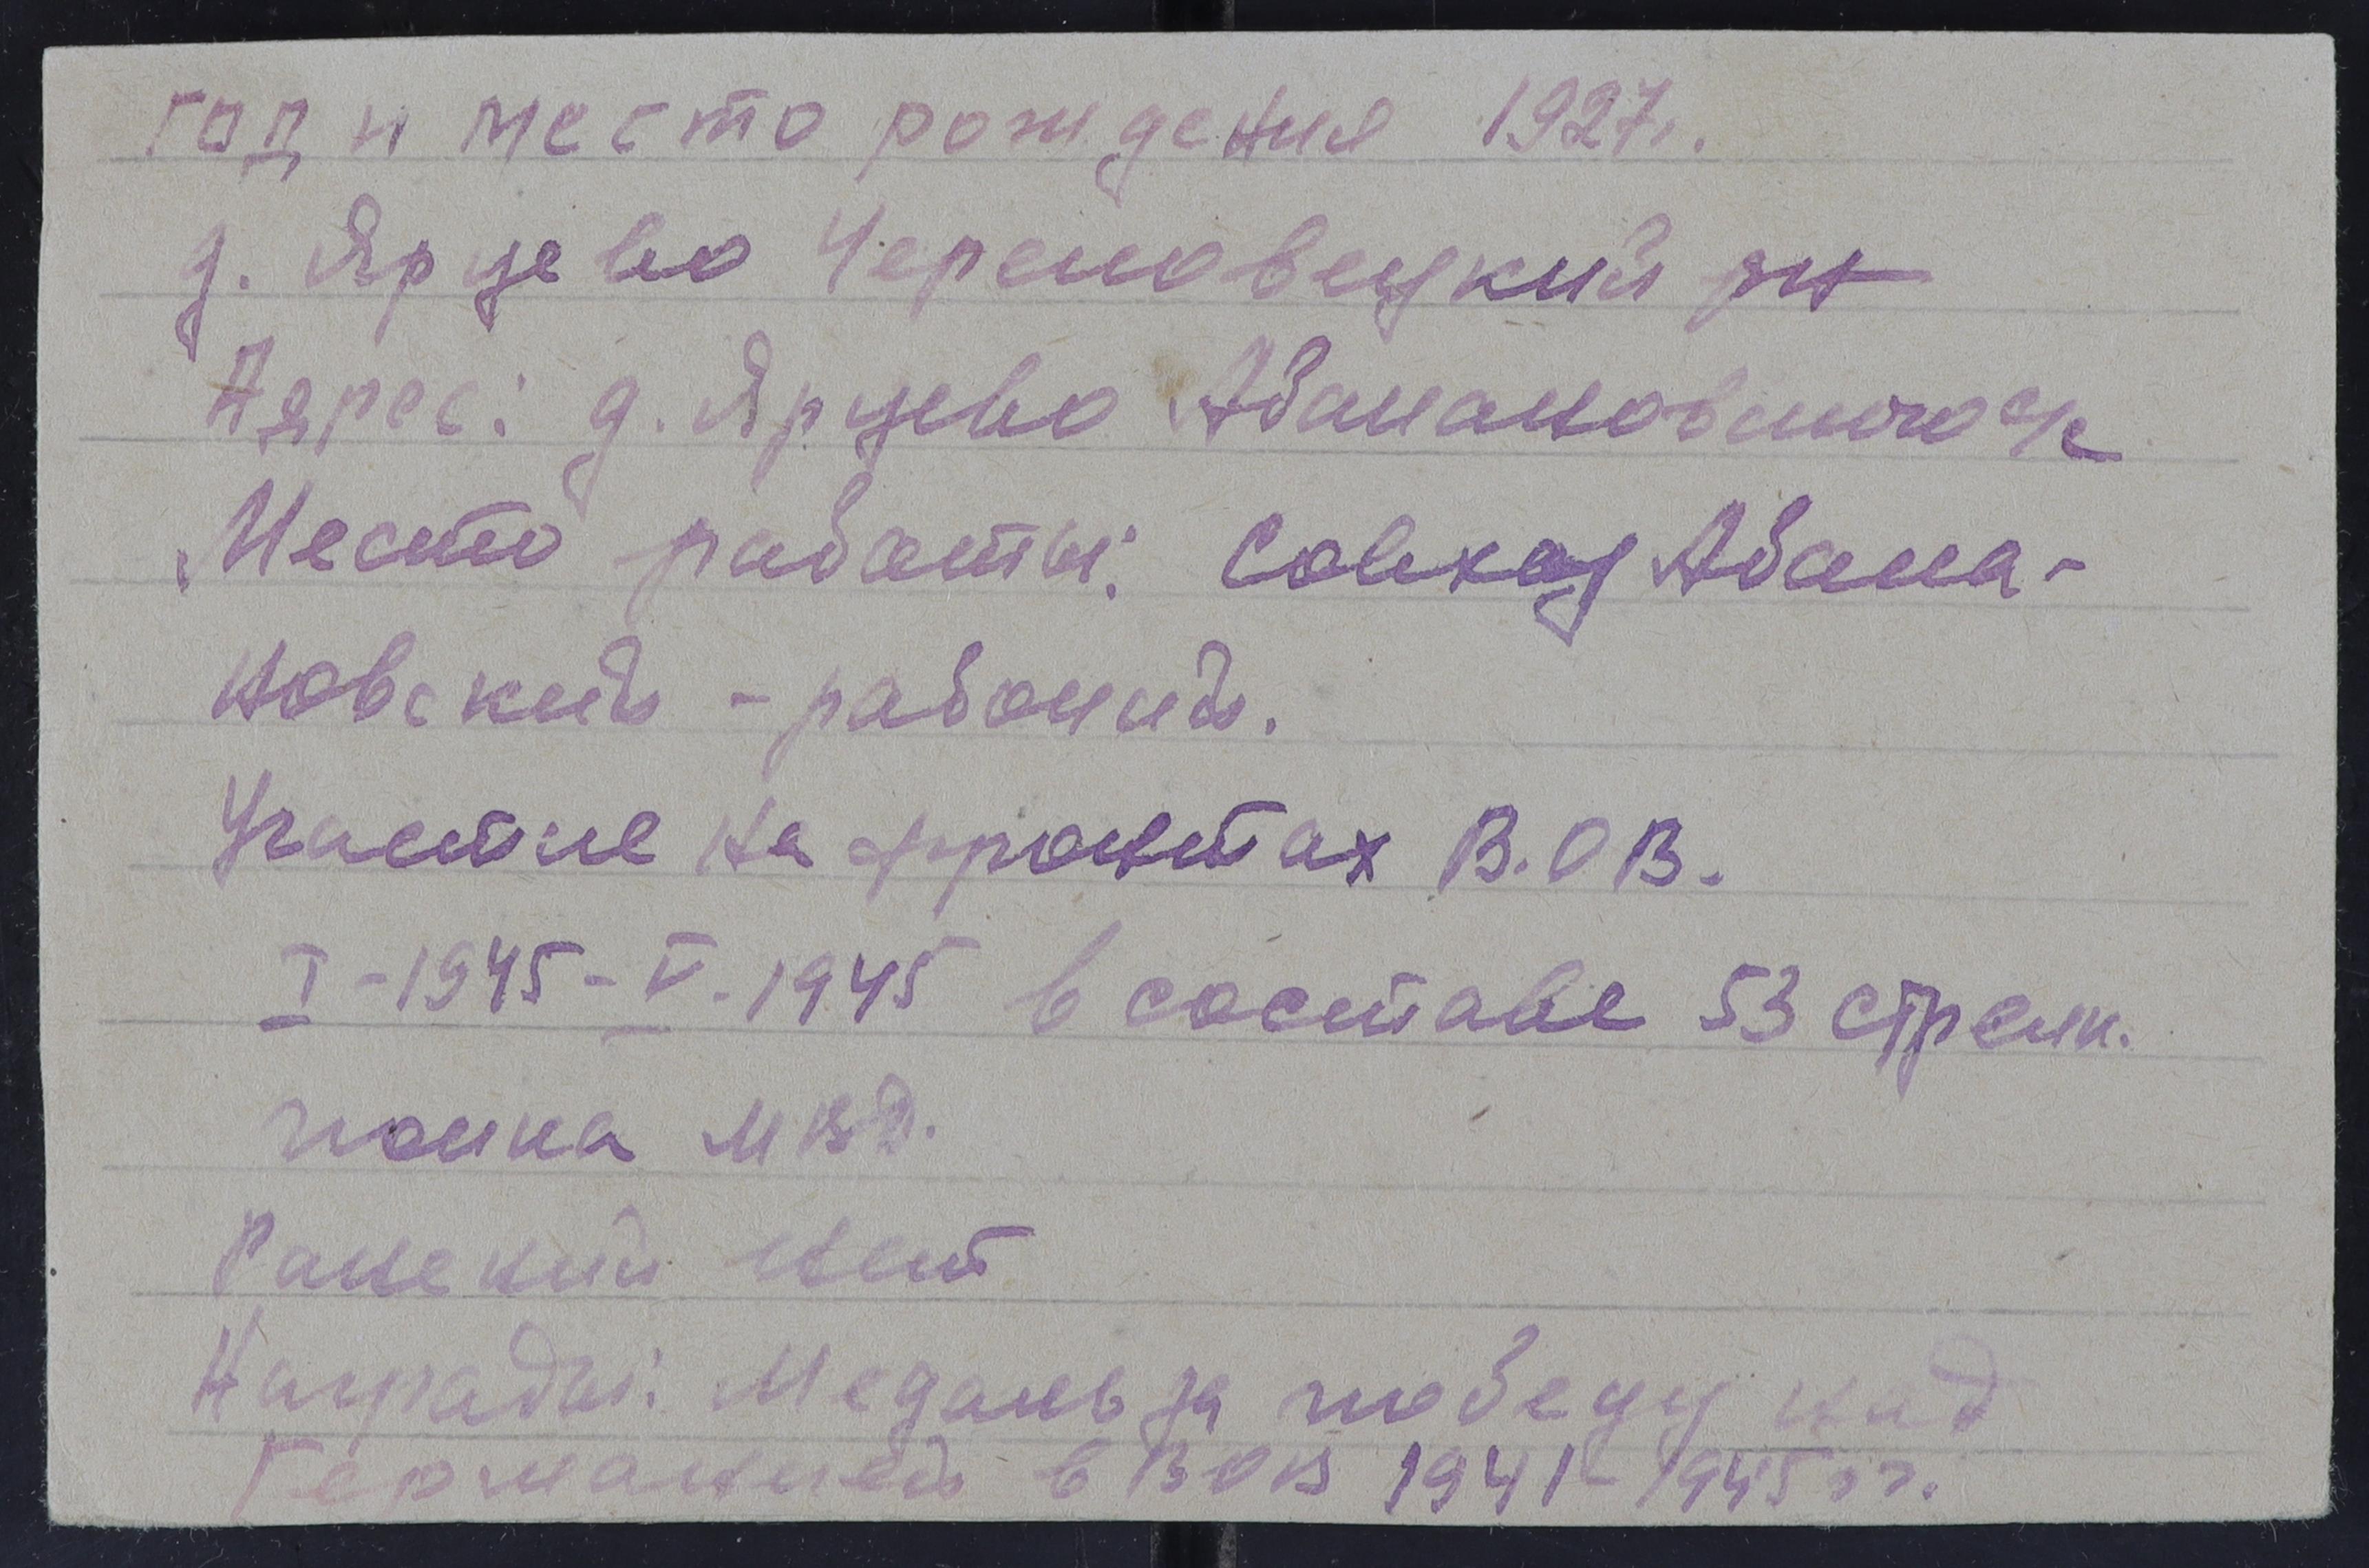 год и место рождения 1927г.
д. Ярцево Череповецкий рн
Адрес: д. Ярцево Абакановского с/с
Место работы: Совхоз Абака-
новский - рабочий.
Участие на фронтах В.О В.
I - 1945 - V - 1945 в составе 53 стрелк.
полка МВД.
Ранений нет
Награды: Медаль за победу над
Германией в ВОВ 1941 - 1945 гг.